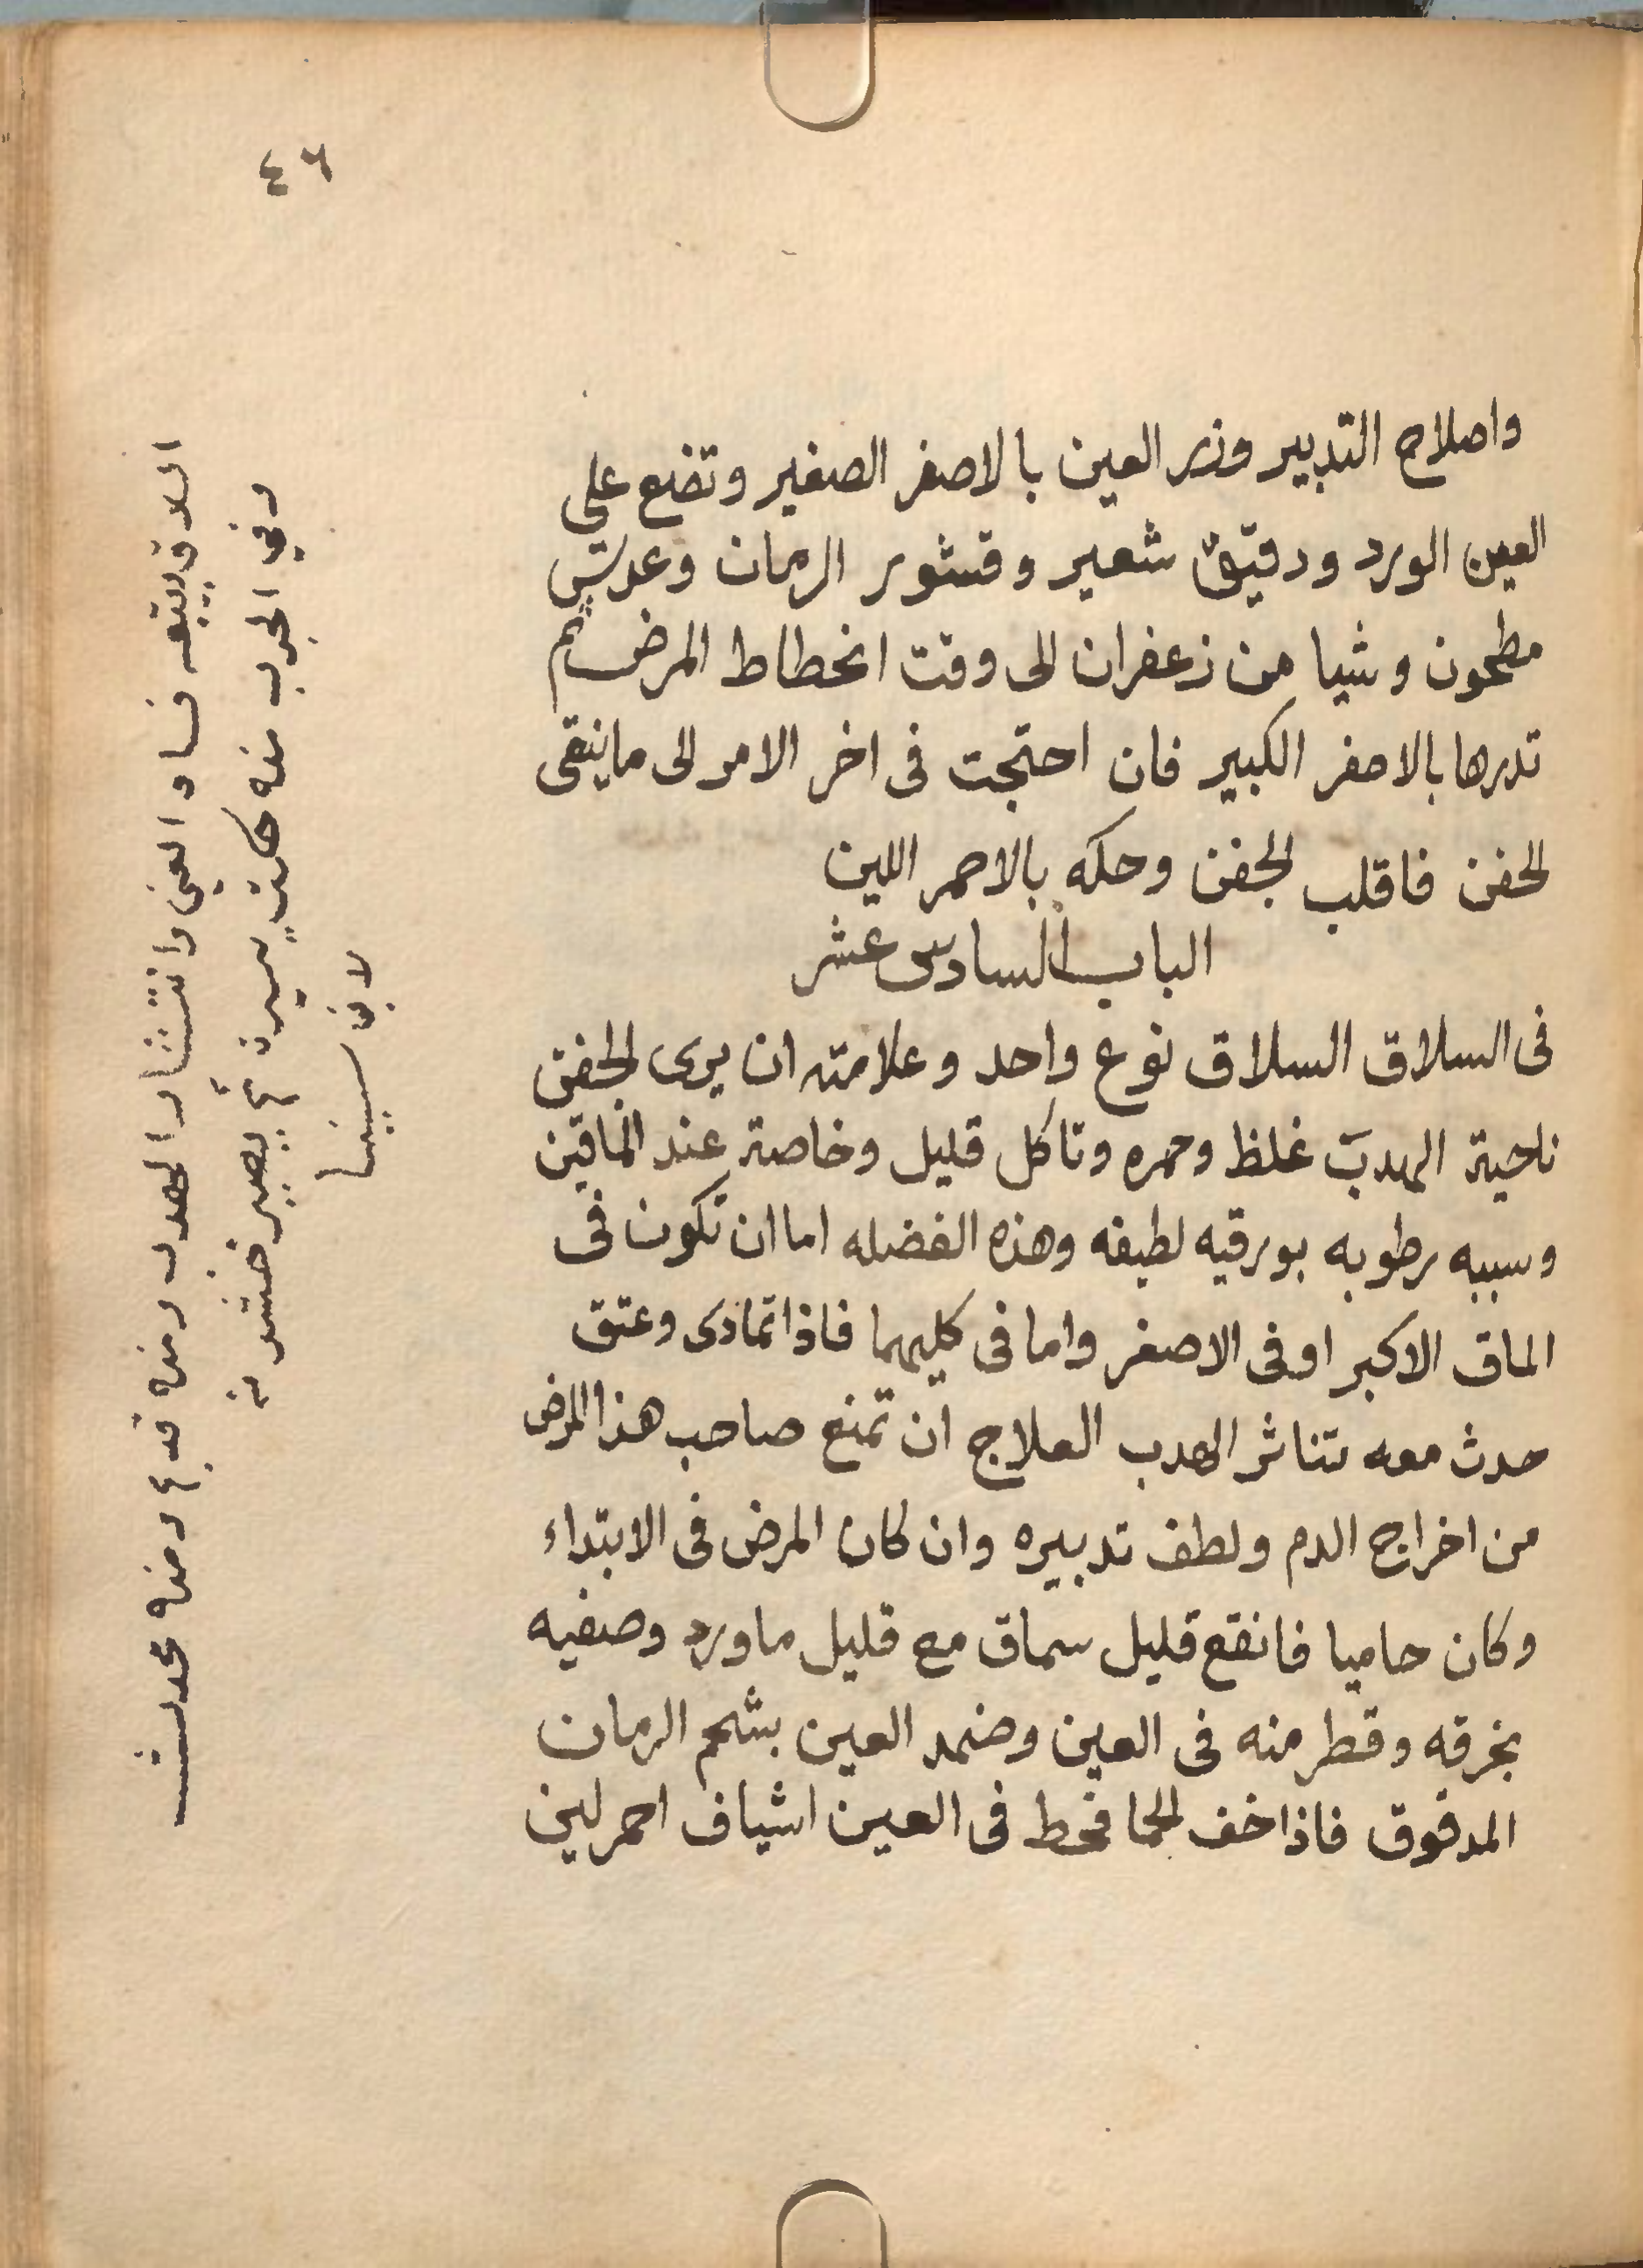 ٤٦
واصلاح التدبير وذر العين بالاصفر الصغير وتضع على
العين الورد ودقيق شعير وقشور الرمان وعدس
مطحون وشيا من زعفران الى وقت انحطاط المرض ثم
تدرها بالاصفر الكبير فان احتجت فى اخر الامر الى ما ينقى
الجفن فاقلب الجفن وحكه بالاحمر اللين
الباب السادس عشر
فى السلاق السلاق نوع واحد وعلامته ان يرى الجفن
ناحية الهدب غلظ وحمره وتاكل قليل وخاصة عند الماقين
وسببه رطوبه بورقيه لطيفه وهذه الفضله اما ان تكون فى
الماق الاكبر او فى الاصغر واما فى كليهما فاذا تمادى وعتق
حدث معه تناثر الهدب العلاج ان تمنع صاحب هذا المرض
من اخراج الدم ولطف تدبيره وان كان المرض فى الابتداء
وكان حاميا فانقع قليل سماق مع قليل ماورد وصفيه
بخرقه وقطر منه فى العين وضمد العين بشحم الرمان
المدقوق فاذا خف الحما فحط فى العين اشياف احمر لين
السلاق يتبعه فساد العين وانتثار الهدب ومنه قديم ومنه محدث
وفي الجرب منه حكة يسيرة ثم يصير خشونة
لابن سينا